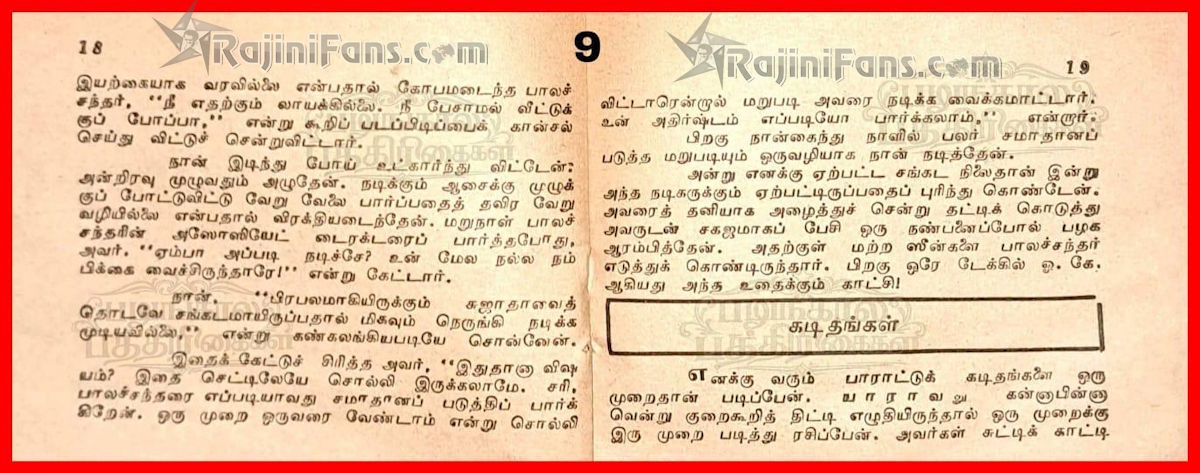 18
9
RajiniFans.com
இயற்கையாக வரவில்லை என்பதால் கோபமடைந்த பாலச்
சந்தர், “நீ எதற்கும் லாயக்கில்லை. நீ பேசாமல் வீட்டுக்
குப் போப்பா.” என்று கூறிப் படப்பிடிப்பைக் கான்சல்
செய்து விட்டுச் சென்றுவிட்டார்.
நான் இடிந்து போய் உட்கார்ந்து விட்டேன்:
அன்றிரவு முழுவதும் அழுதேன். நடிக்கும் ஆசைக்கு முழுக்
குப் போட்டுவிட்டு வேறு வேலை பார்ப்பதைத் தவிர வேறு
வழியில்லை என்பதால் விரக்தியடைந்தேன். மறுநாள் பாலச்
சந்தரின் அஸோஸியேட் டைரக்டரைப் பார்த்தபோது,
அவர். “ஏம்பா அப்படி நடிச்சே? உன் மேல நல்ல நம்
பிக்கை வைச்சிருந்தாரே!” என்று கேட்டார்.
நான். “பிரபலமாகியிருக்கும் சுஜாதாவைத்
தொடவே சங்கடமாயிருப்பதால் மிகவும் நெருங்கி நடிக்க
முடியவில்லை,” என்று கண்கலங்கியபடியே சொன்னேன்.
இதைக் கேட்டுச் சிரித்த அவர், “இதுதானா விஷ
யம்? இதை செட்டிலேயே சொல்லி இருக்கலாமே. சரி,
பாலச்சந்தரை எப்படியாவது சமாதானப் படுத்திப் பார்க்
கிறேன். ஒரு முறை ஒருவரை வேண்டாம் என்று சொல்லி
RajiniFans.com
19
விட்டாரென்றால் மறுபடி அவரை நடிக்க வைக்கமாட்டார்.
உன் அதிர்ஷ்டம் எப்படியோ பார்க்கலாம்.” என்றார்.
பிறகு நான்கைந்து நாளில் பலர் சமாதானப்
படுத்த மறுபடியும் ஒருவழியாக நான் நடித்தேன்.
அன்று எனக்கு ஏற்பட்ட சங்கட நிலைதான் இன்று
அந்த நடிகருக்கும் ஏற்பட்டிருப்பதைப் புரிந்து கொண்டேன்.
அவரைத் தனியாக அழைத்துச் சென்று தட்டிக் கொடுத்து
அவருடன் சகஜமாகப் பேசி ஒரு நண்பனைப்போல் பழக
ஆரம்பித்தேன். அதற்குள் மற்ற ஸீன்களை பாலச்சந்தர்
எடுத்துக் கொண்டிருந்தார். பிறகு ஒரே டேக்கில் ஓ. கே.
ஆகியது அந்த உதைக்கும் காட்சி!
கடிதங்கள்
எனக்கு வரும் பாராட்டுக் கடிதங்களை ஒரு
முறைதான் படிப்பேன். யாராவது கன்னாபின்னா
வென்று குறைகூறித் திட்டி எழுதியிருந்தால் ஒரு முறைக்கு
இரு முறை படித்து ரசிப்பேன். அவர்கள் சுட்டிக் காட்டி
பழங்கால
பத்திரிகைகள்